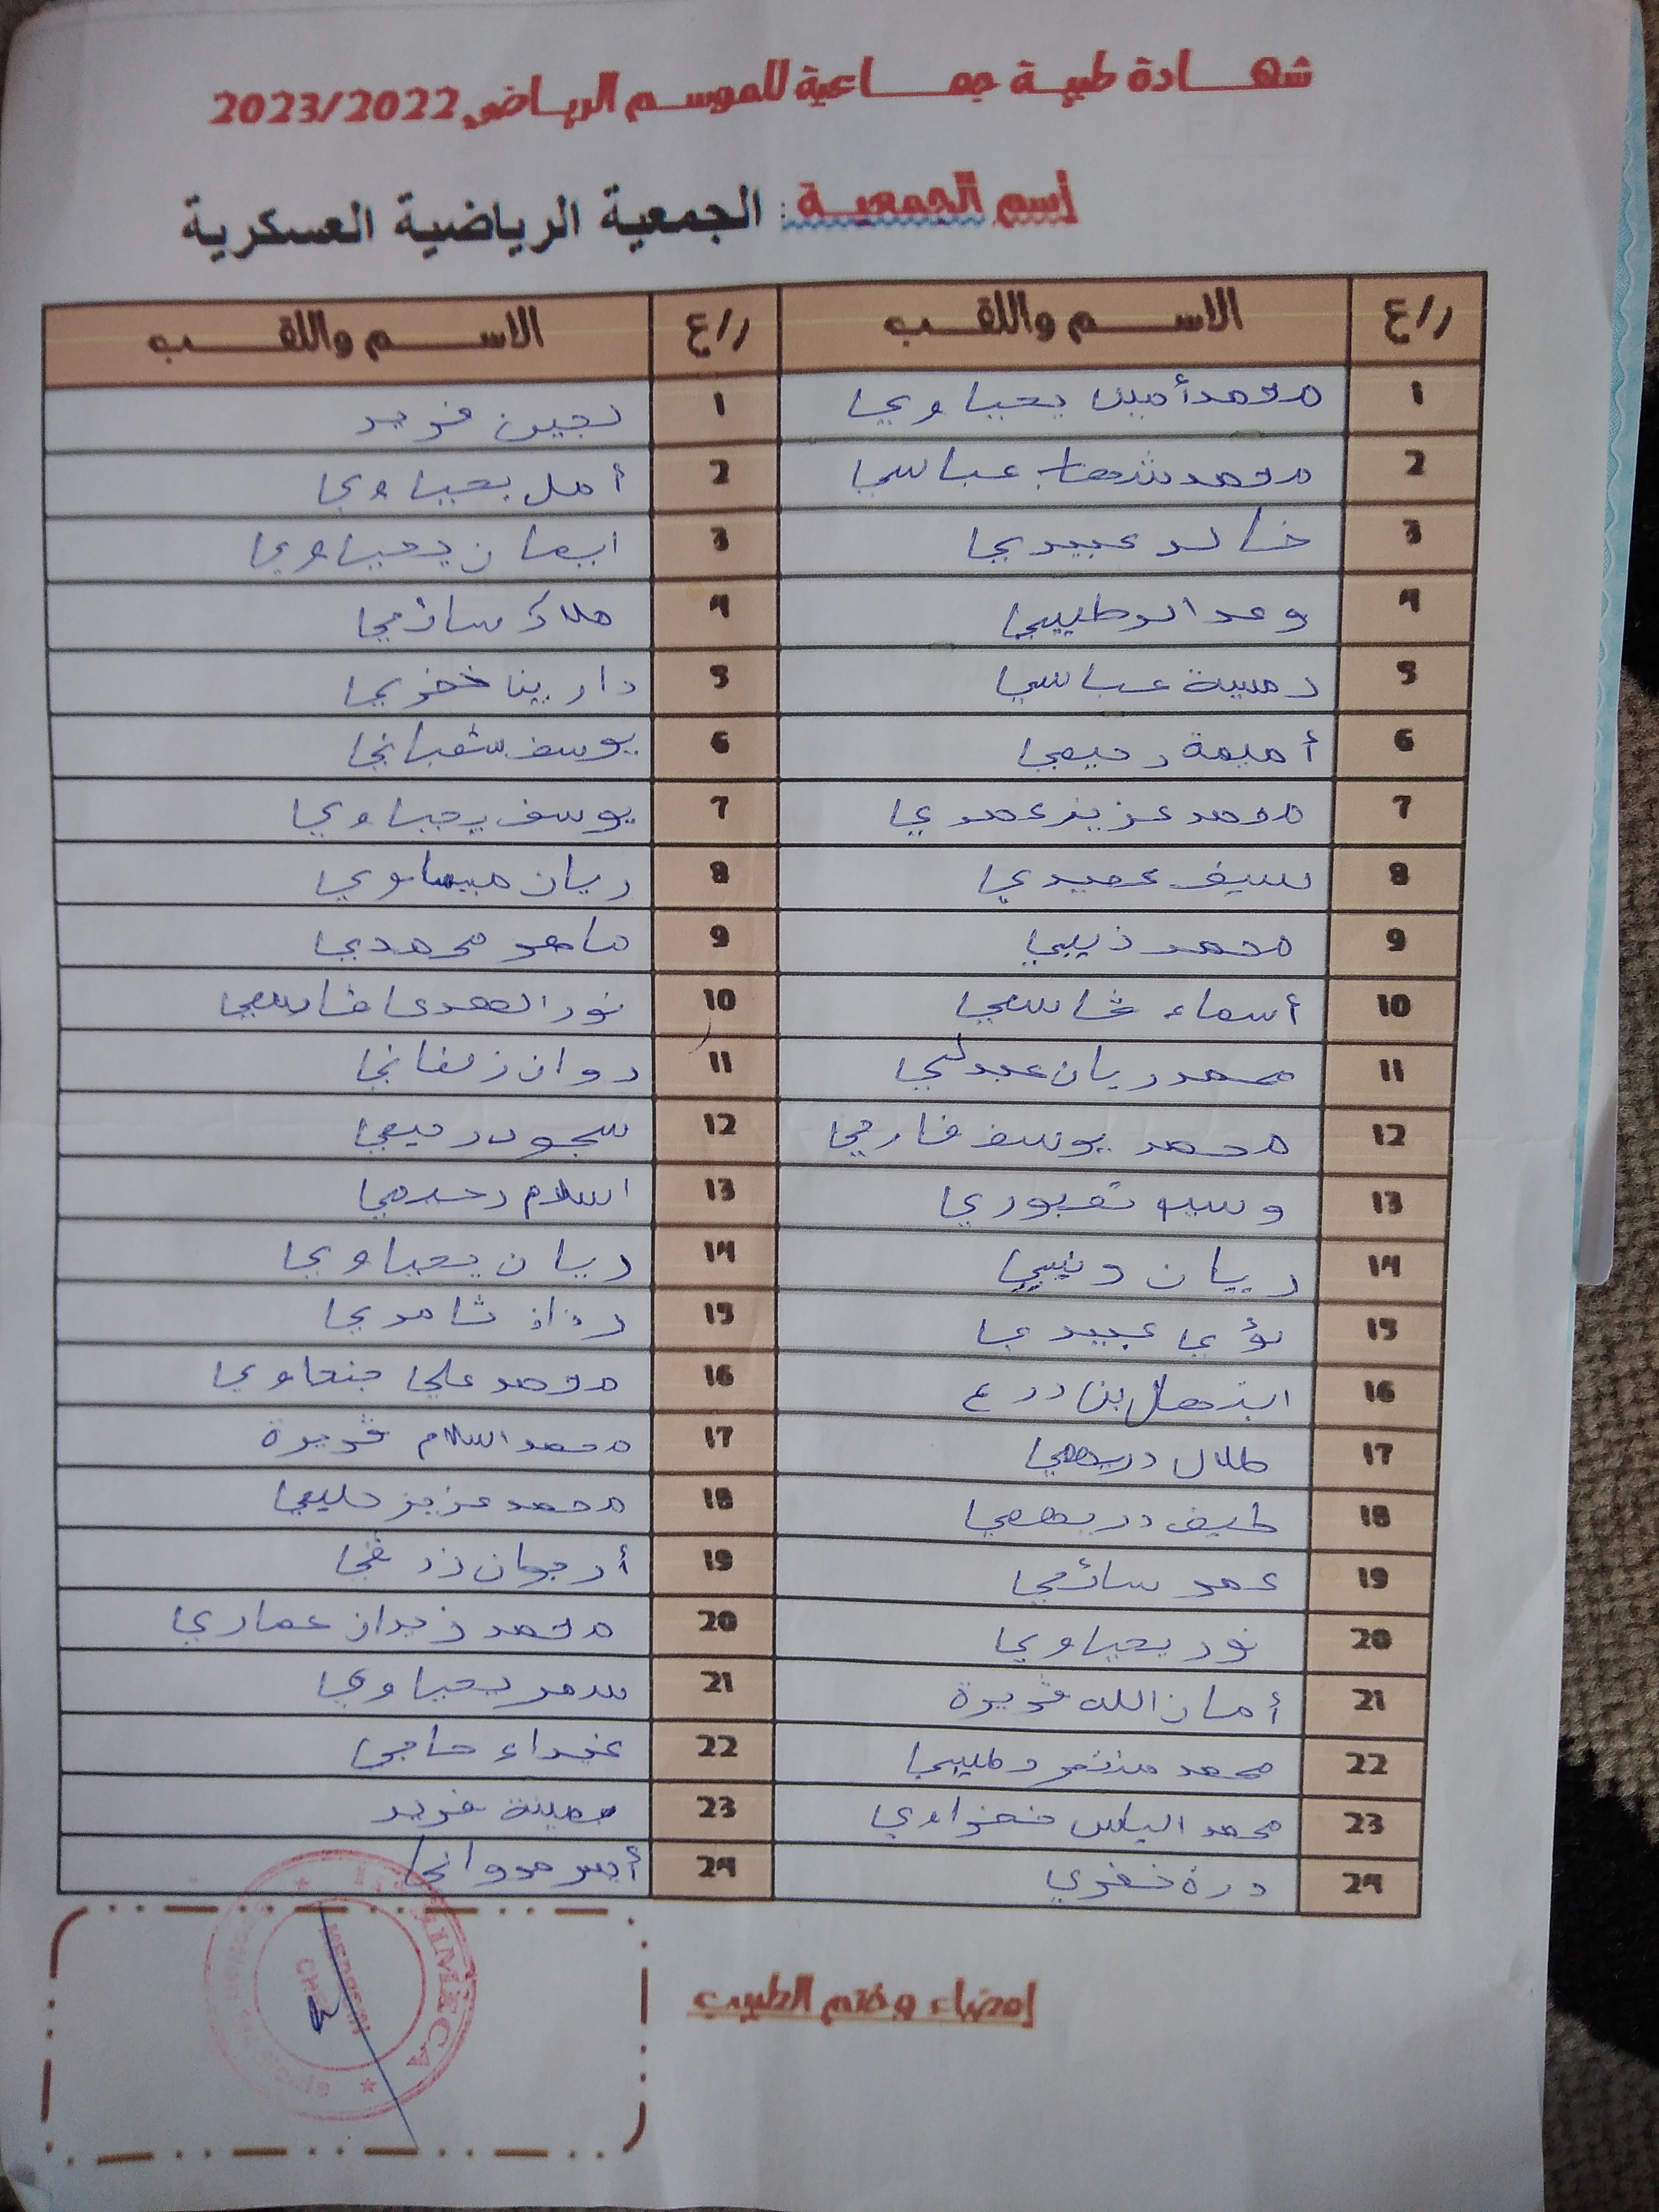 شهادة طبية جماعية للموسم الرياضي 2023/2022
إسم الجمعية : الجمعية الرياضية العسكرية
ر/ع الاسم واللقب ر/ع الاسم واللقب
1 محمد أمين يحياوي 1 لجين فريد
2 محمد شهاب عباسي 2 أمل يحياوي
3 خالد عبيدي 3 ايمان يحياوي
4 وعد الرطيبي 4 ملاك سائمي
5 رميسة عباسي 5 دارينا خضري
6 أميمة رحيمي 6 يوسف شعباني
7 محمد عزيز عمدي 7 يوسف يحياوي
8 سيف عميدي 8 ريان ميساوي
9 محمد ذيبي 9 ماهر محمدي
10 أسماء قاسمي 10 نور الهدى قاسمي
11 محمد ريان عبدلي 11 روان زلفاني
12 محمد يوسف فارحي 12 سجود رحيمي
13 تعبوري 13 اسلام رحيمي
14 ريان ونيسي 14 ريان يحياوي
15 لؤي عبيدي 15 رزان ثامري
16 ابتهال بن درع 16 محمد علي جنحاوي
17 طلال دريهمي 17 محمد اسلام قريرة
18 طيف دريهمي 18 محمد عزيز حليمي
19 عمر سائمي 19 أرجوان زرقي
20 نور يحياوي 20 محمد زيدان عماري
21 أمان الله قريرة 21 سمر يحياوي
22 محمد منتصر رطيبي 22 غيداء حاجي
23 محمد الياس نفزاوي 23 يمينة فريد
24 درة خضري 24 أيسر مرواني
إمضاء وختم الطبيب